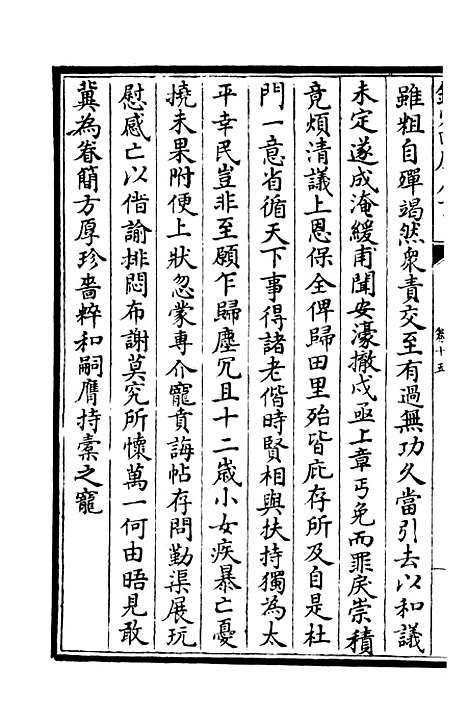 雖粗自殫竭然衆責交至有過無功久當引去以和議
未定遂成淹緩甫聞安濠撤戍亟上章丐免而罪戾崇積
竟煩清議上恩保全俾歸田里殆皆庇存所及自是杜
門一意省循天下事得諸老偕時賢相與扶持獨為太
平幸民豈非至願乍歸塵冗且十二歲小女疾暴亡憂
撓未果附便上狀忽蒙專介寵賁誨帖存問勤渠展玩
慰感亡以偕諭排悶布謝莫究所懷萬一何由晤見敢
冀為眷簡方厚珍嗇粹和嗣膺持橐之寵
卷十五